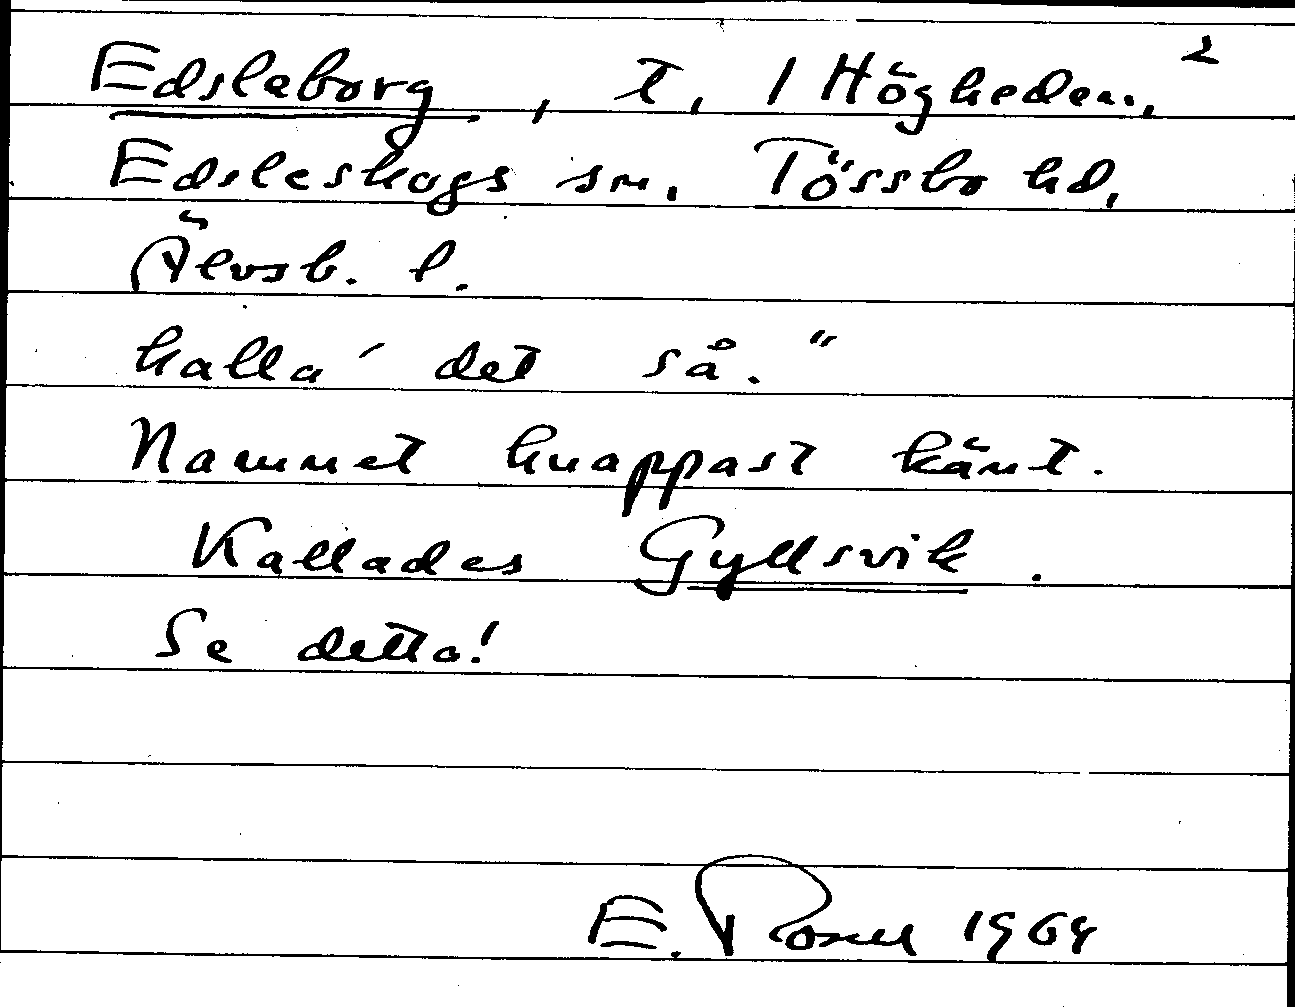 Edsleborg, t. 1 Högheden, 2
Edsleskogs sn. Tössbo hd,
Älvsb. l.
kalla' det så."
Namnet knappast känt.
Kallades Gyllsvik.
Se detta!
E. Rosell 1964